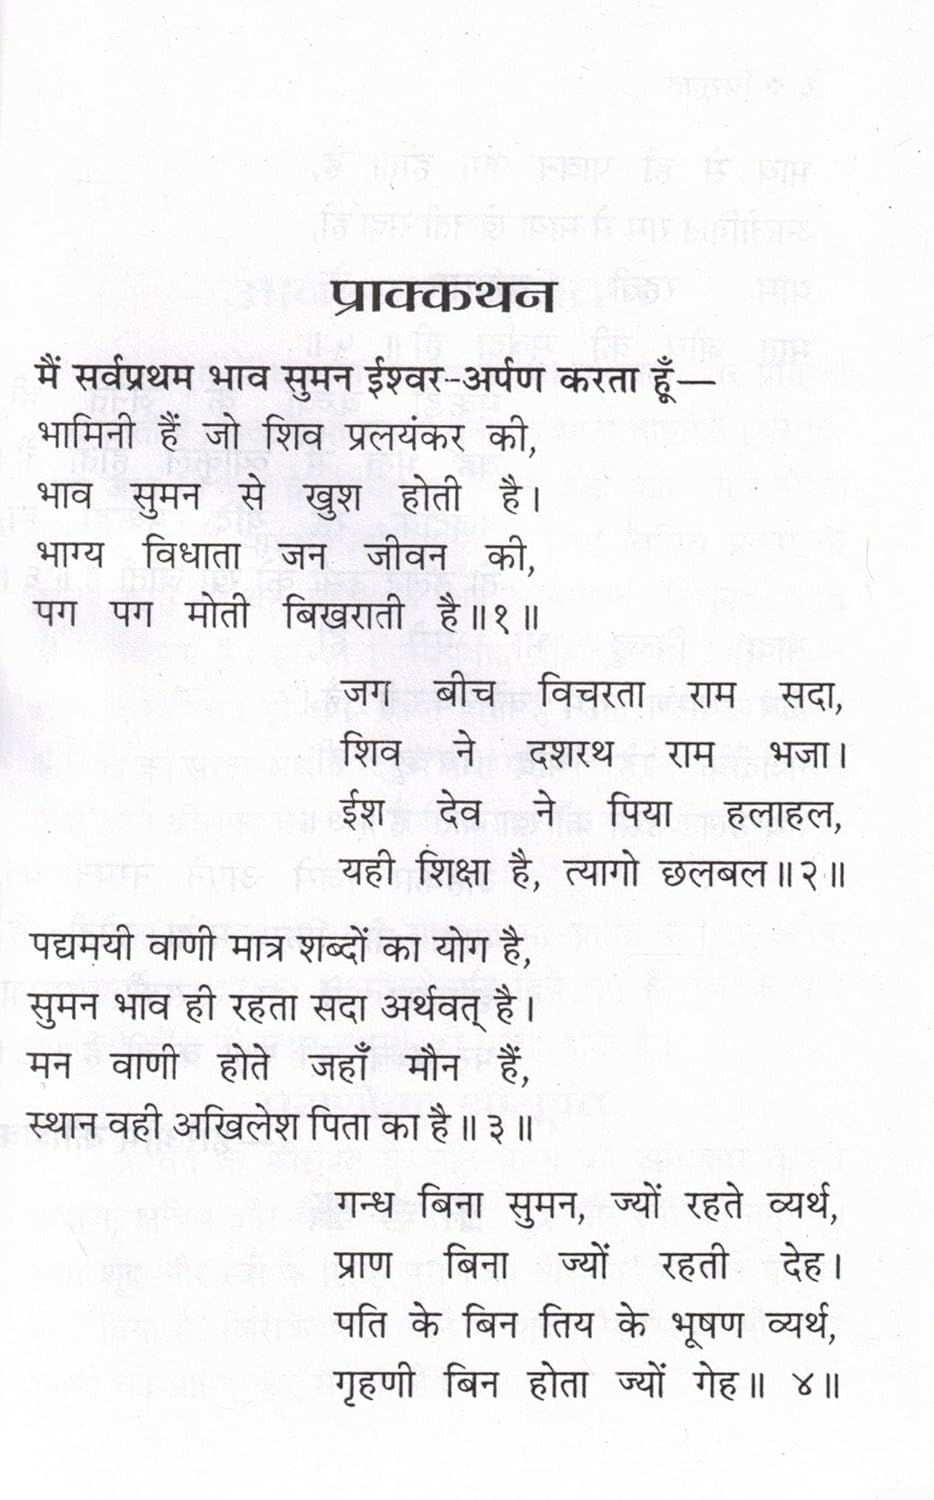 प्राक्कथन
मैं सर्वप्रथम भाव सुमन ईश्वर-अर्पण करता हूँ—
भामिनी हैं जो शिव प्रलयंकर की,
भाव सुमन से खुश होती है।
भाग्य विधाता जन जीवन की,
पग पग मोती बिखराती है॥१॥
जग बीच विचरता राम सदा,
शिव ने दशरथ राम भजा।
ईश देव ने पिया हलाहल,
यही शिक्षा है, त्यागो छलबल॥२॥
पद्यमयी वाणी मात्र शब्दों का योग है,
सुमन भाव ही रहता सदा अर्थवत् है।
मन वाणी होते जहाँ मौन हैं,
स्थान वही अखिलेश पिता का है॥३॥
गन्ध बिना सुमन, ज्यों रहते व्यर्थ,
प्राण बिना ज्यों रहती देह।
पति के बिन तिय के भूषण व्यर्थ,
गृहणी बिन होता ज्यों गेह॥ ४॥